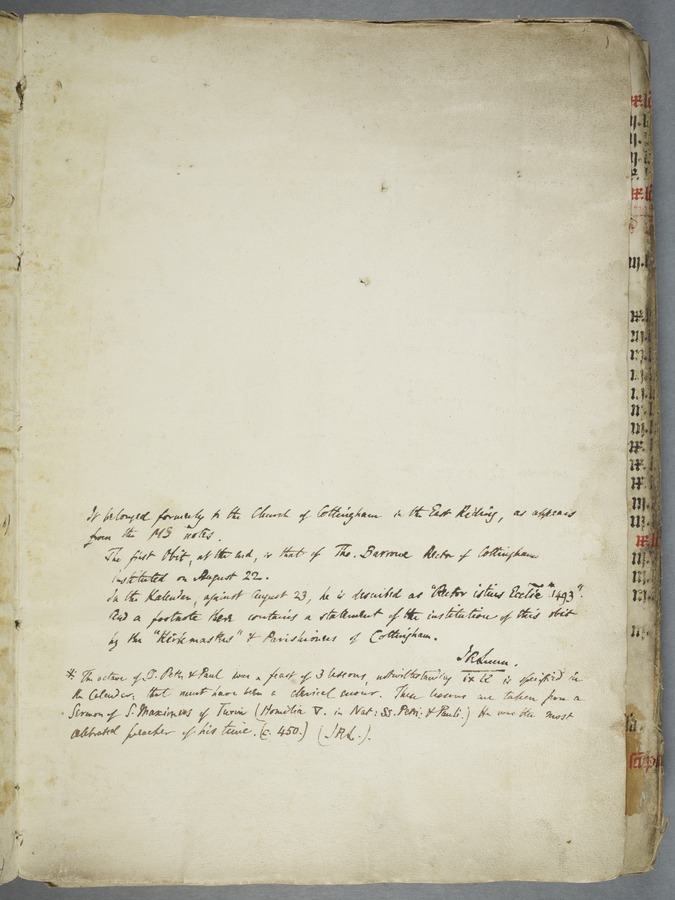 It belonged formerly to the Church of Cottingham in the East Riding, as appears
from the MS notes.
The first Obit, at the end, is that of Tho. Barrowe Rector of Cottingham
instituted on August 22.
In the Kalendar, against August 23, he is described as "Rector istius Ecclie" "1493".
And a footnote there contains a statement of the institution of this obit
by the "Kirkmasters" & Parishioners of Cottingham.
JRLunn.
* The octave of S. Peter & Paul was a feast of 3 lessons, notwithstanding ix lc is specified in
the Calendar: that must have been a clerical error. These lessons are taken from a
Sermon of S. Maximus of Turin (Homilia V. in Nat: SS. Petri & Pauli.) He was the most
celebrated preacher of his time. (c. 450.) (J.R.L.).